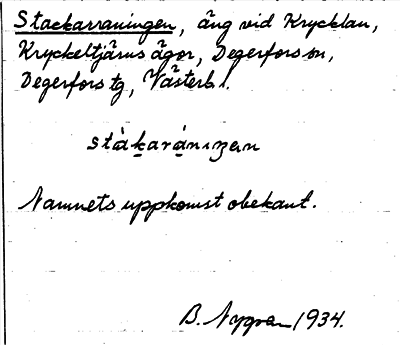 Stackarraningen, äng vid Krycklan,
Kryckeltjärns ägor, Degerfors sn,
Degerfors tg, Västerb l.
stàkaránıŋen
Namnets uppkomst obekant.
B. Nygren 1934.